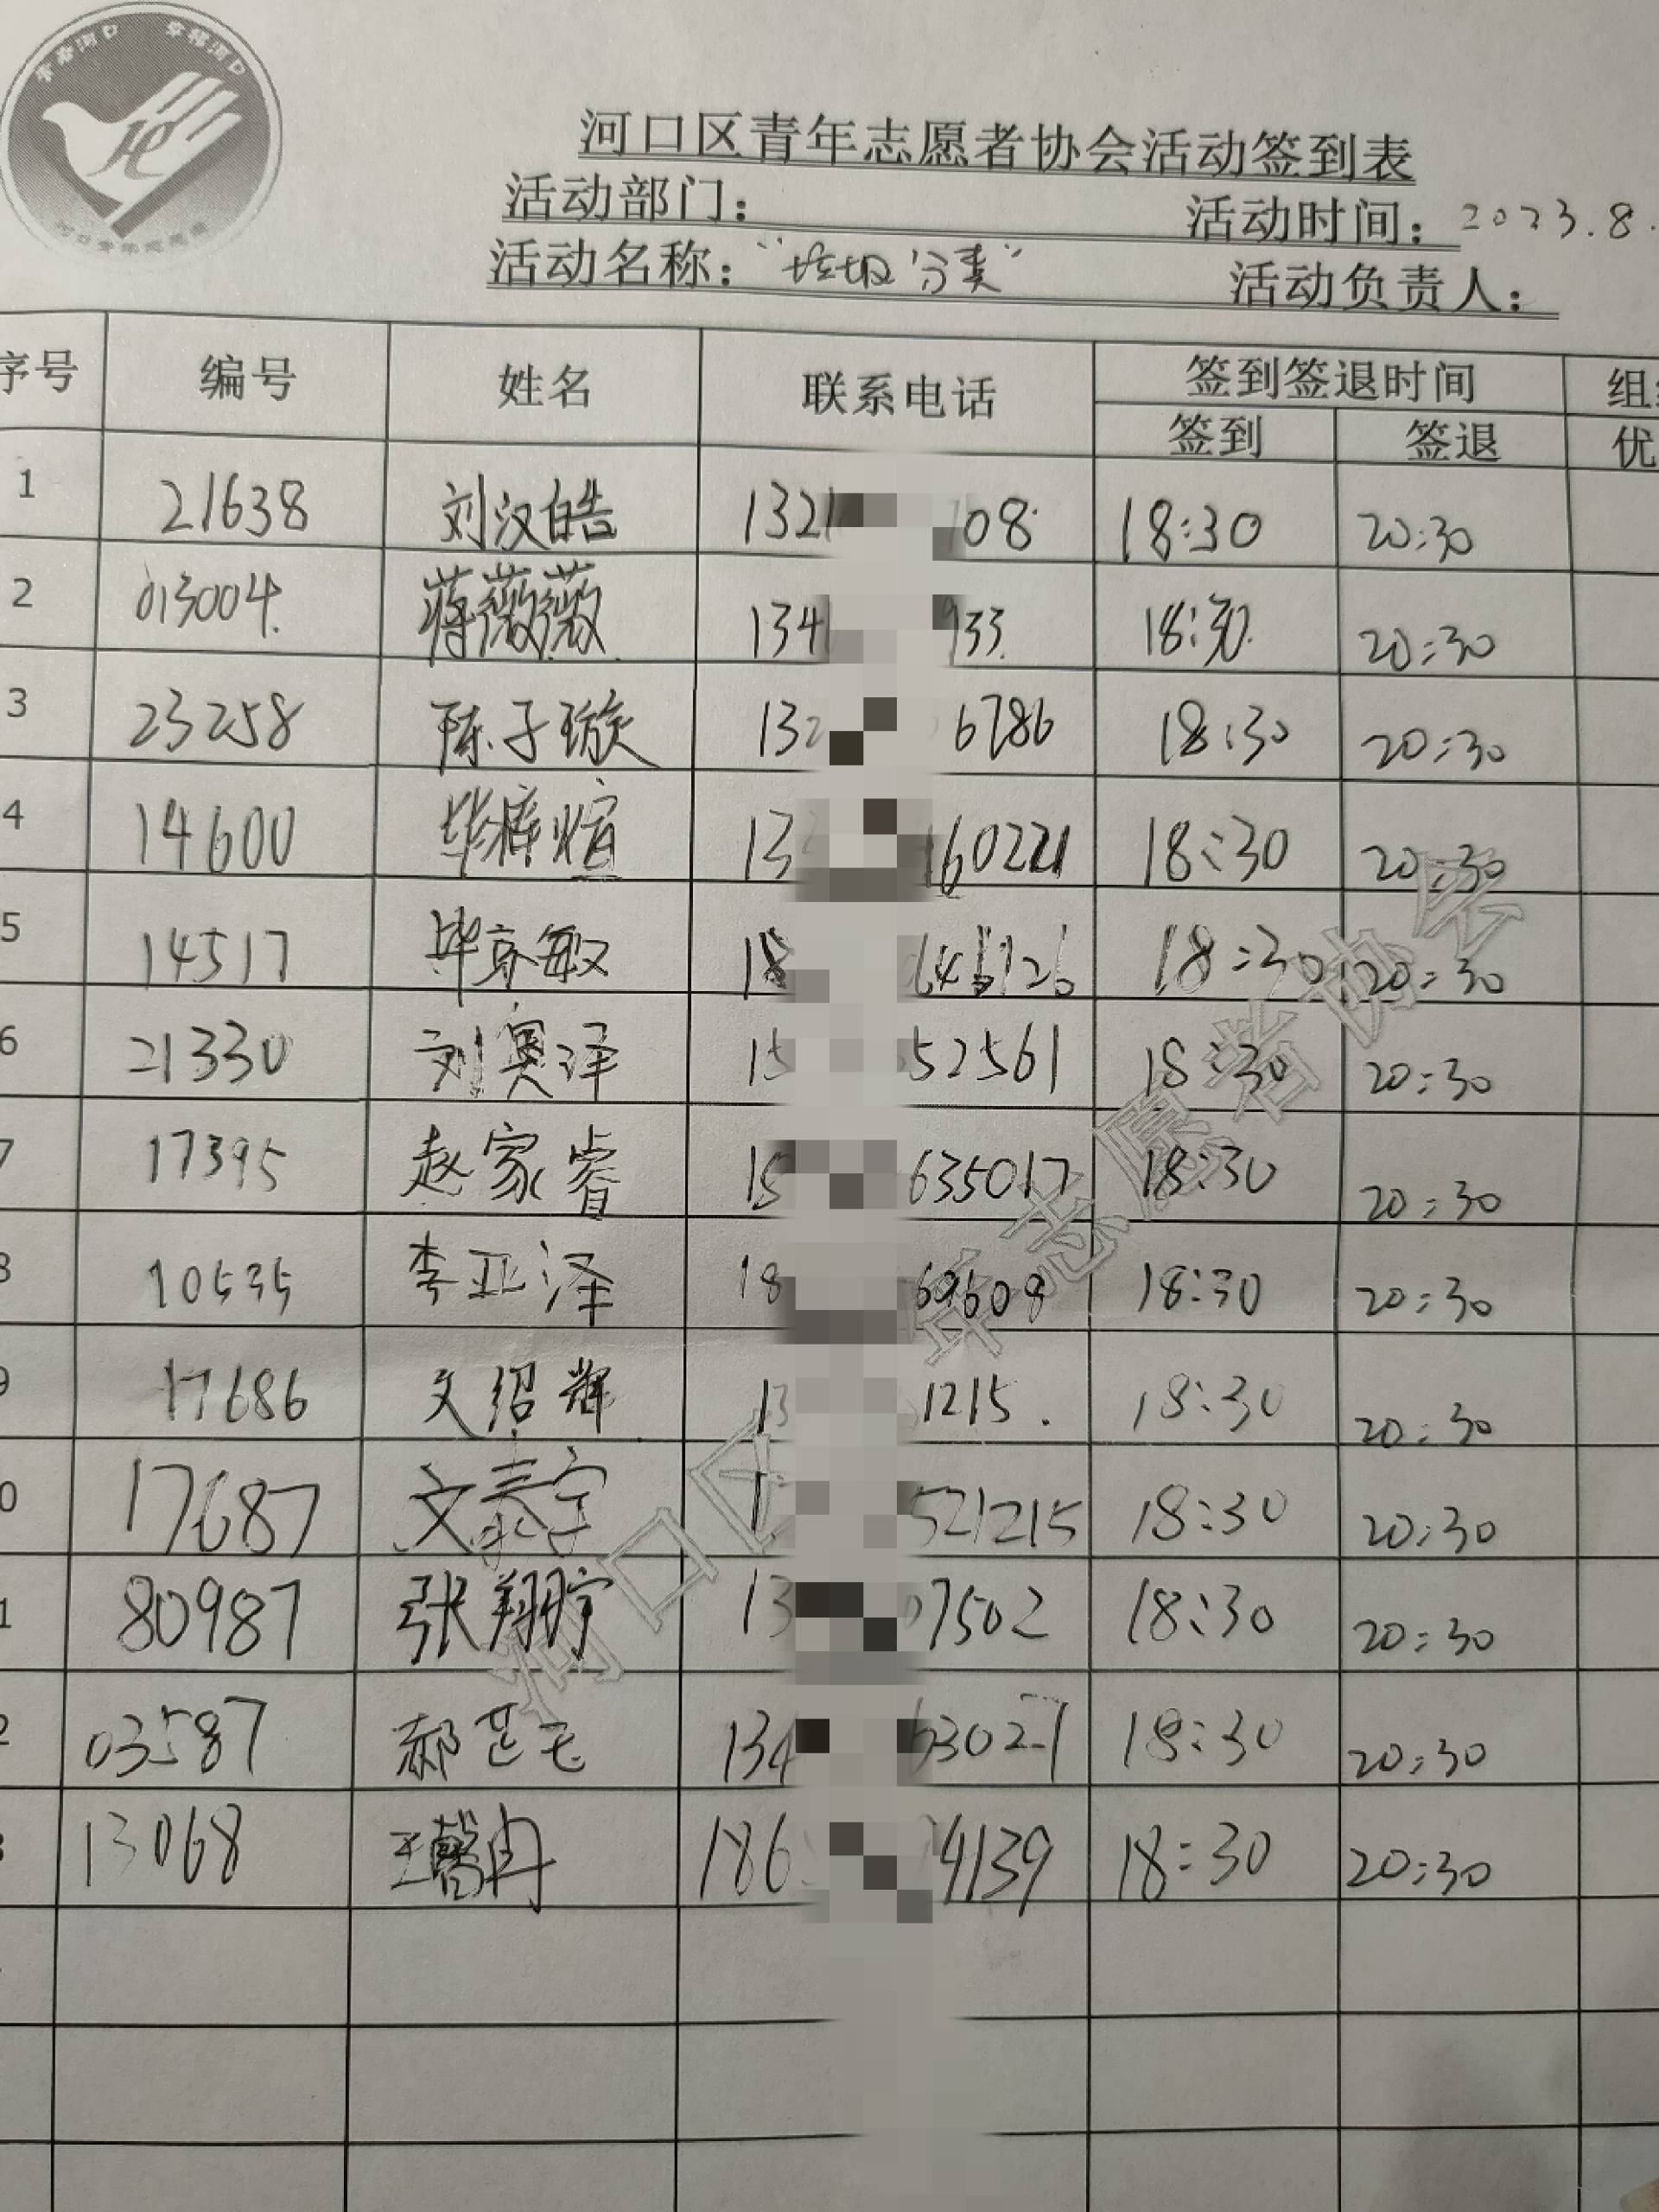 河口区青年志愿者协会活动签到表
活动部门： 活动时间：2023.8.
活动名称：“垃圾分类” 活动负责人：
序号 编号 姓名 联系电话 签到签退时间
签到 签退 优
1 21638 刘汉皓 1321 108 18:30 20:30
2 013004. 蒋薇薇 134 933. 18:30. 20:30
3 23258 陈子璇 132 6786 18:30 20:30
4 14600 毕梓煊 13 160221 18:30 20:30
5 14517 毕京敏 18 18:30 20:30
6 21330 刘奥泽 15 52561 18:30 20:30
7 17395 赵家睿 15 635017 18:30 20:30
10535 李亚泽 18 69609 18:30 20:30
17686 文绍辉 13 1215. 18:30 20:30
0 17687 文泰宇 521215 18:30 20:30
1 80987 张翔宇 13 07502 18:30 20:30
2 03587 郝芷毛 134 63027 18:30 20:30
13068 王馨冉 186 4139 18:30 20:30
河口区 年志愿者协会